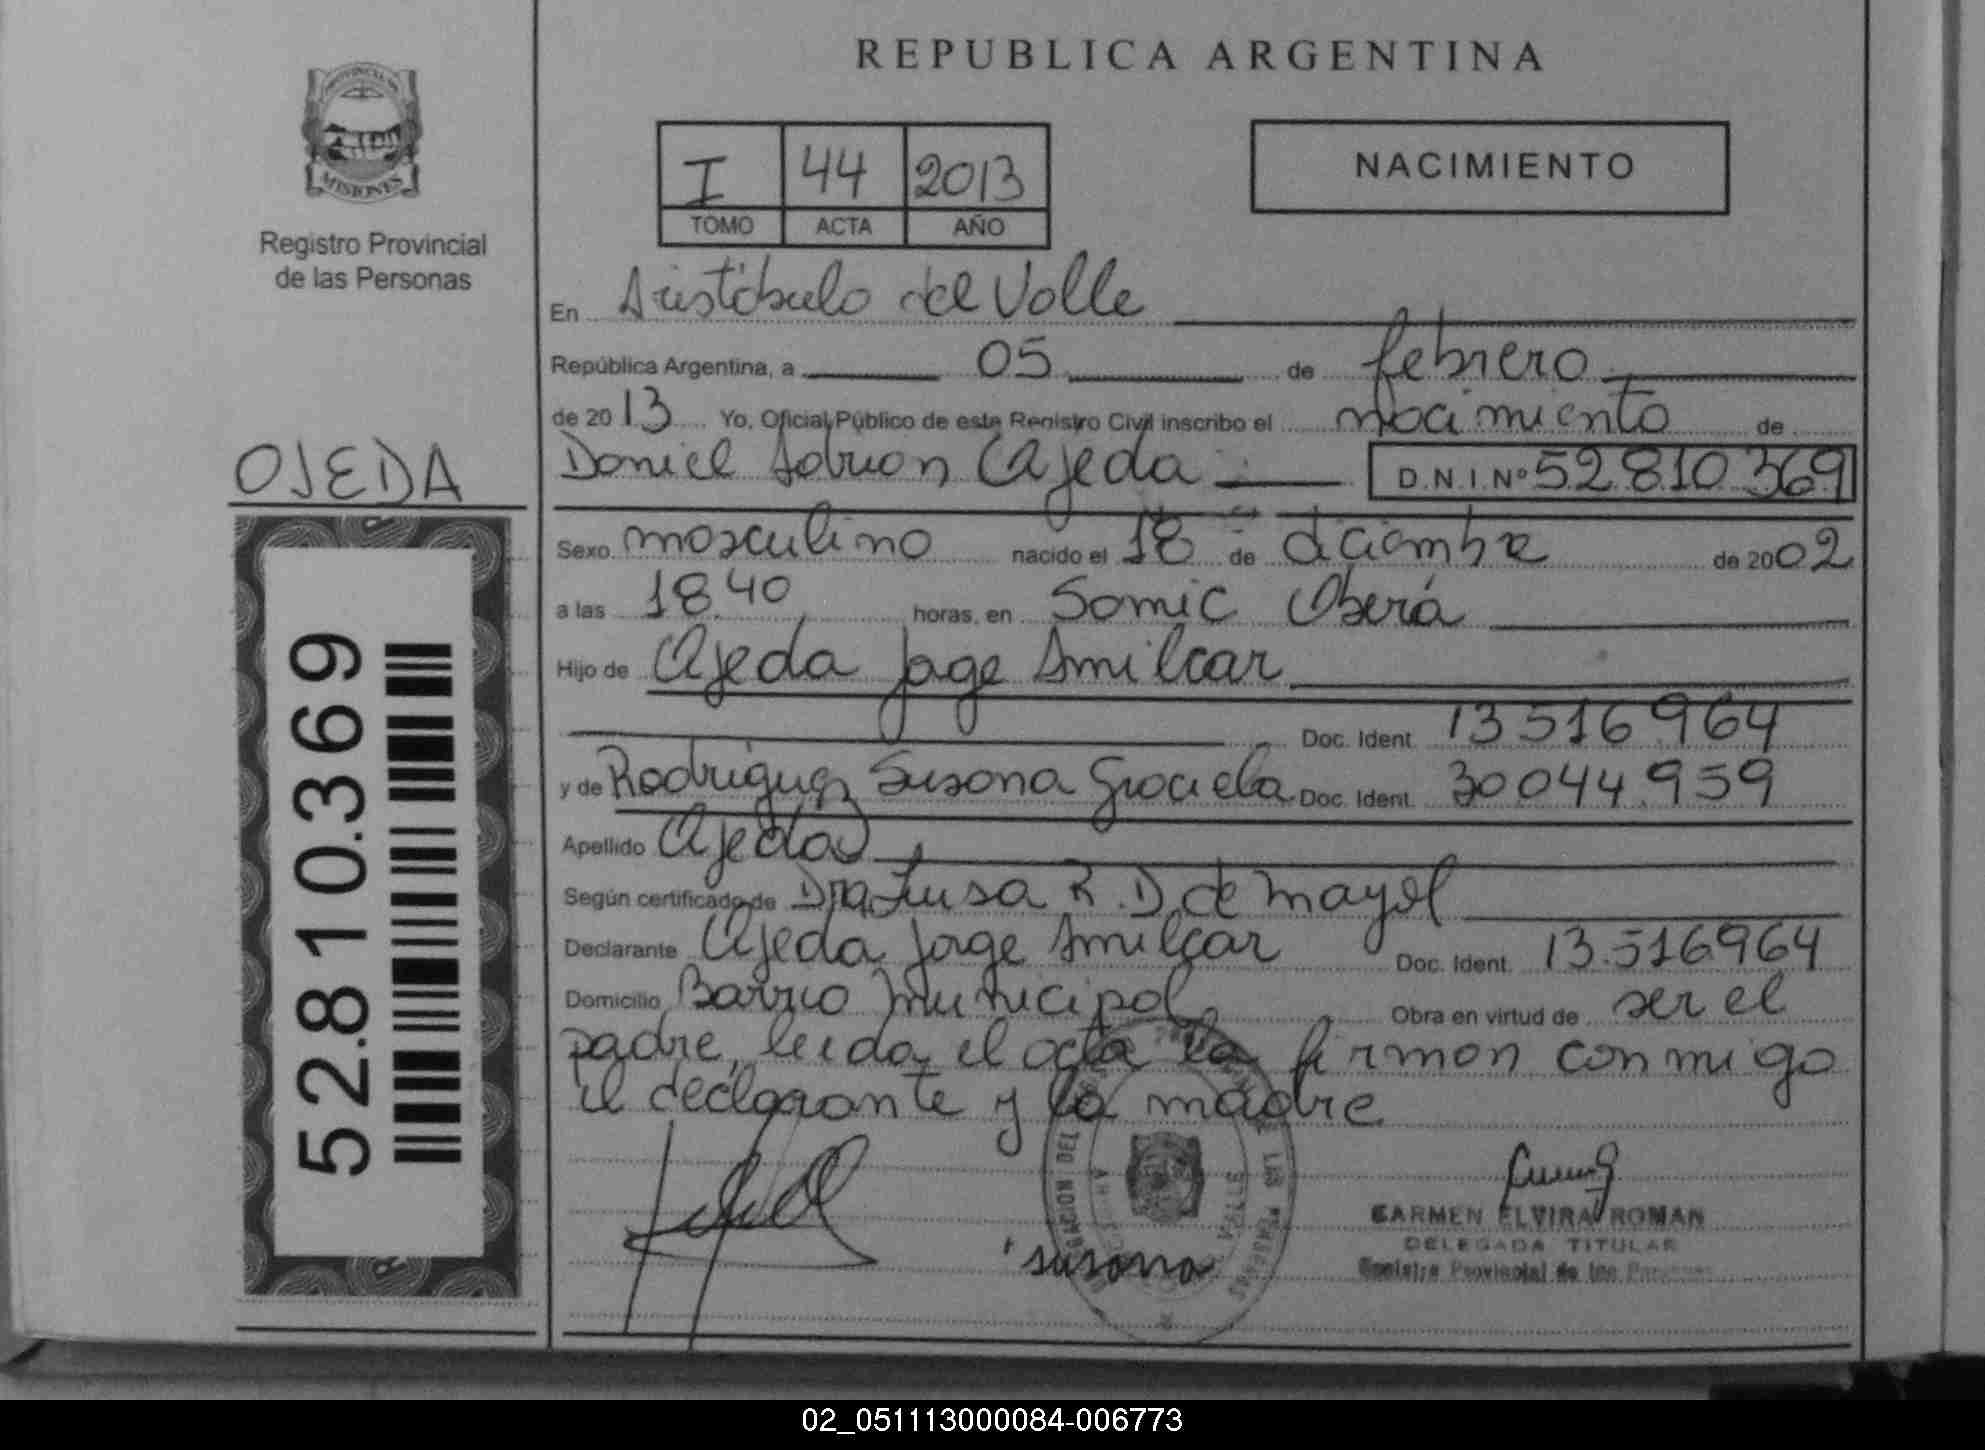 REPUBLICA ARGENTINA
PROVINCIA DE
MISIONES
Registro Provincial
de las Personas
I 44 2013
TOMO ACTA AÑO
NACIMIENTO
En Aristóbulo del Valle
República Argentina, a 05 de febrero
de 2013 Yo, Oficial Público de este Registro Civil inscribo el nacimiento de
OJEDA
Daniel Adrian Ojeda D.N.I. Nº 52 810 369
Sexo masculino nacido el 18 de diciembre de 2002
a las 18.40 horas, en Samic Oberá
Hijo de Ojeda Jorge Amilcar
Doc. Ident. 13516964
y de Rodriguez Susana Graciela Doc. Ident. 30044.959
Apellido Ojeda
Según certificado de Dra R. D. de Mayol
Declarante Ojeda Jorge Amilcar Doc. Ident. 13.516964
Domicilio Barrio Municipal Obra en virtud de ser el
padre, leida el acta la firman conmigo
el declarante y la madre
52.810.369
susana
CARMEN ELVIRA ROMAN
DELEGADA TITULAR
Registro Provincial de las Personas
02_051113000084-006773